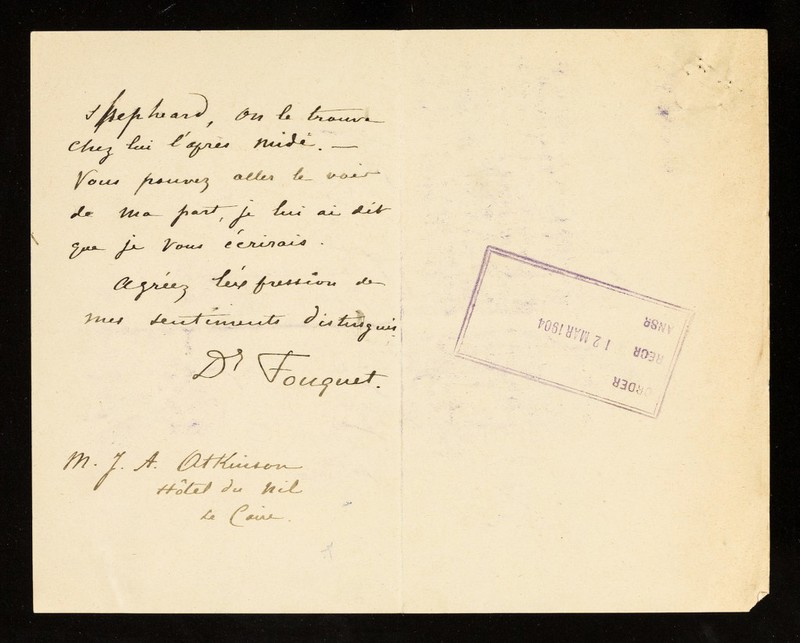 Shepheard, on le trouve
chez lui l'après midi. —
Vous pouvez aller le voir
de ma part, je lui ai dit
que je vous écrirais.
Agréez l'expression de
mes sentiments distingués
Dr Fouquet.
M. J. A. Atkinson
Hôtel du Nil
Le Caire.
ORDER
REGR
12 MAR 1904
ANSR